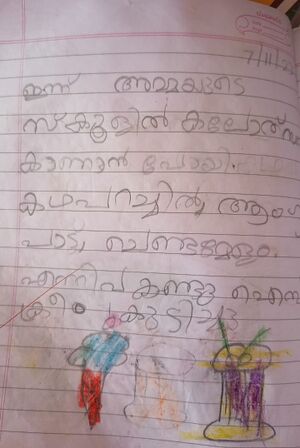 7/11/
ഇന്ന് അമ്മയുടെ
സ്കൂളിൽ കലോത്സ
കാണാൻ പോയി.
കഥപറച്ചിൽ, ആംഗ്
പാട്ട്, ചെണ്ടമേളം.
എന്നിവ കണ്ടു ഐസ്
ക്രീം കുടിച്ചു